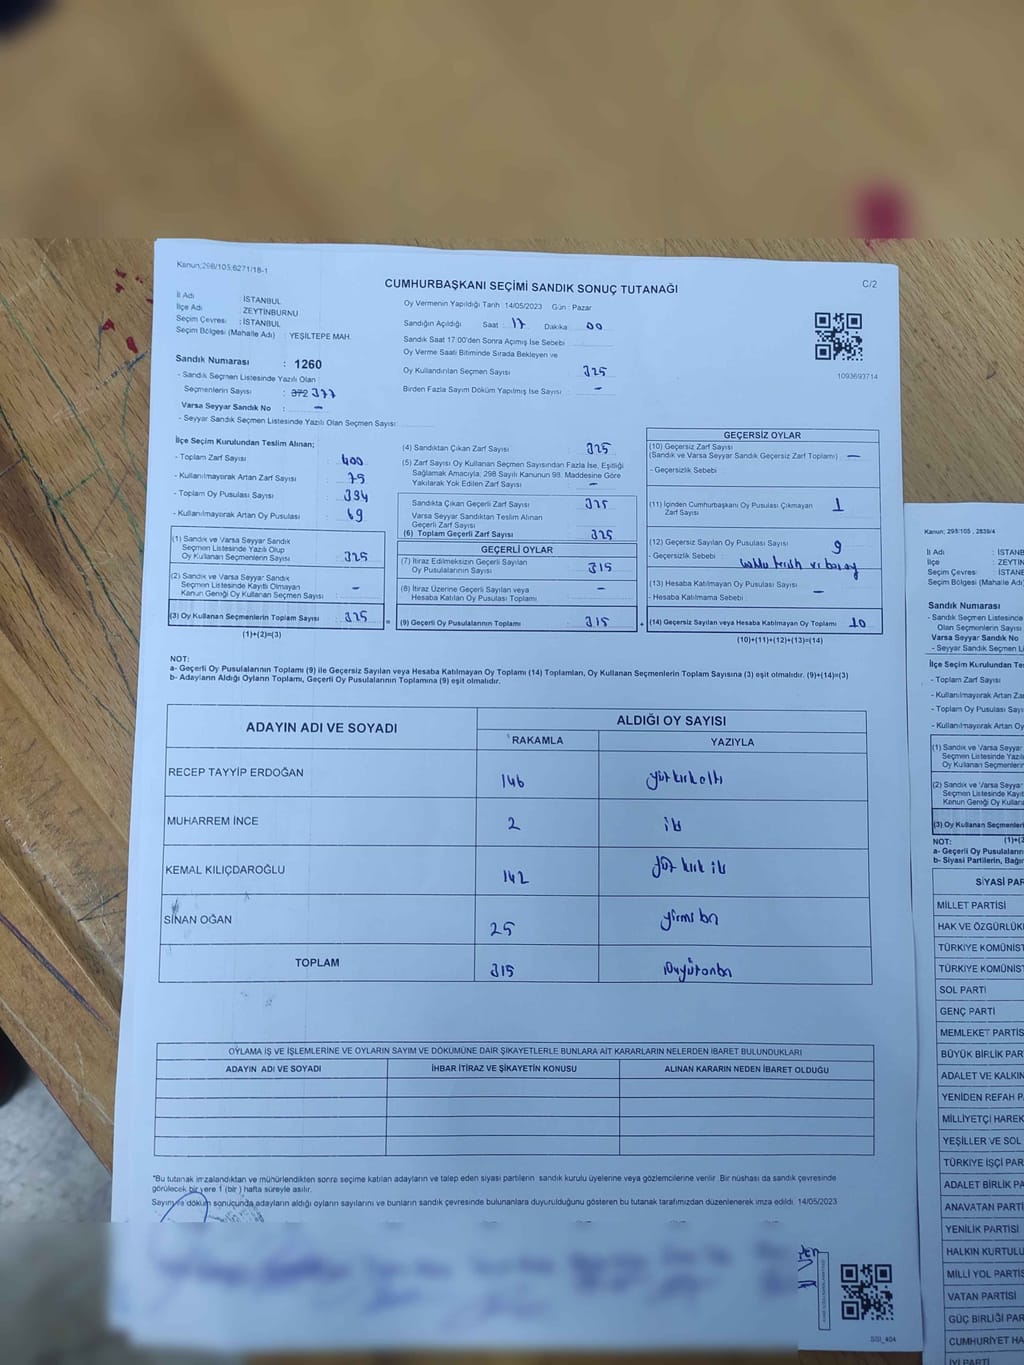 Kanun;298/105;6271/18-1
CUMHURBAŞKANI SEÇİMİ SANDIK SONUÇ TUTANAĞI
C/2
İl Adı : İSTANBUL
İlçe Adı : ZEYTİNBURNU
Seçim Çevresi : İSTANBUL
Seçim Bölgesi (Mahalle Adı) : YEŞİLTEPE MAH.
Sandık Numarası : 1260
- Sandık Seçmen Listesinde Yazılı Olan
Seçmenlerin Sayısı : 372 377
Varsa Seyyar Sandık No : –
- Seyyar Sandık Seçmen Listesinde Yazılı Olan Seçmen Sayısı :
Oy Vermenin Yapıldığı Tarih : 14/05/2023 Gün : Pazar
Sandığın Açıldığı Saat : 17 Dakika 00
Sandık Saat 17:00'den Sonra Açılmış İse Sebebi
Oy Verme Saati Bitiminde Sırada Bekleyen ve
Oy Kullandırılan Seçmen Sayısı : 325
Birden Fazla Sayım Döküm Yapılmış İse Sayısı : –
1093693714
İlçe Seçim Kurulundan Teslim Alınan;
- Toplam Zarf Sayısı : 400
- Kullanılmayarak Artan Zarf Sayısı : 75
- Toplam Oy Pusulası Sayısı : 394
- Kullanılmayarak Artan Oy Pusulası : 69
(1) Sandık ve Varsa Seyyar Sandık
Seçmen Listesinde Yazılı Olup
Oy Kullanan Seçmenlerin Sayısı : 325
(2) Sandık ve Varsa Seyyar Sandık
Seçmen Listesinde Kayıtlı Olmayan
Kanun Gereği Oy Kullanan Seçmen Sayısı : –
(3) Oy Kullanan Seçmenlerin Toplam Sayısı : 325
(1)+(2)=(3)
(4) Sandıktan Çıkan Zarf Sayısı : 325
(5) Zarf Sayısı Oy Kullanan Seçmen Sayısından Fazla İse, Eşitliği
Sağlamak Amacıyla, 298 Sayılı Kanunun 98. Maddesine Göre
Yakılarak Yok Edilen Zarf Sayısı : –
Sandıkta Çıkan Geçerli Zarf Sayısı : 325
Varsa Seyyar Sandıktan Teslim Alınan
Geçerli Zarf Sayısı :
(6) Toplam Geçerli Zarf Sayısı : 325
GEÇERLİ OYLAR
(7) İtiraz Edilmeksizin Geçerli Sayılan
Oy Pusulalarının Sayısı : 315
(8) İtiraz Üzerine Geçerli Sayılan veya
Hesaba Katılan Oy Pusulası Toplamı : –
= (9) Geçerli Oy Pusulalarının Toplamı : 315
GEÇERSİZ OYLAR
(10) Geçersiz Zarf Sayısı
(Sandık ve Varsa Seyyar Sandık Geçersiz Zarf Toplamı) : –
- Geçersizlik Sebebi :
(11) İçinden Cumhurbaşkanı Oy Pusulası Çıkmayan
Zarf Sayısı : 1
(12) Geçersiz Sayılan Oy Pusulası Sayısı : 9
- Geçersizlik Sebebi :
(13) Hesaba Katılmayan Oy Pusulası Sayısı : –
- Hesaba Katılmama Sebebi :
+ (14) Geçersiz Sayılan veya Hesaba Katılmayan Oy Toplamı : 10
(10)+(11)+(12)+(13)=(14)
NOT:
a- Geçerli Oy Pusulalarının Toplamı (9) ile Geçersiz Sayılan veya Hesaba Katılmayan Oy Toplamı (14) Toplamları, Oy Kullanan Seçmenlerin Toplam Sayısına (3) eşit olmalıdır. (9)+(14)=(3)
b- Adayların Aldığı Oyların Toplamı, Geçerli Oy Pusulalarının Toplamına (9) eşit olmalıdır.
ADAYIN ADI VE SOYADI
ALDIĞI OY SAYISI
RAKAMLA YAZIYLA
RECEP TAYYİP ERDOĞAN 146 yüz kırk altı
MUHARREM İNCE 2 iki
KEMAL KILIÇDAROĞLU 142 yüz kırk iki
SİNAN OĞAN 25 yirmi beş
TOPLAM 315 üçyüzonbeş
OYLAMA İŞ VE İŞLEMLERİNE VE OYLARIN SAYIM VE DÖKÜMÜNE DAİR ŞİKAYETLERLE BUNLARA AİT KARARLARIN NELERDEN İBARET BULUNDUKLARI
ADAYIN ADI VE SOYADI İHBAR İTİRAZ VE ŞİKAYETİN KONUSU ALINAN KARARIN NEDEN İBARET OLDUĞU
*Bu tutanak imzalandıktan ve mühürlendikten sonra seçime katılan adayların ve talep eden siyasi partilerin sandık kurulu üyelerine veya gözlemcilerine verilir. Bir nüshası da sandık çevresinde
görülecek bir yere 1 (bir) hafta süreyle asılır.
Sayım ve döküm sonucunda adayların aldığı oyların sayılarını ve bunların sandık çevresinde bulunanlara duyurulduğunu gösteren bu tutanak tarafımızdan düzenlenerek imza edildi. 14/05/2023
SSİ_404
Kanun; 298/105 , 2839/4
İl Adı : İSTANB
İlçe : ZEYTİN
Seçim Çevresi : İSTANB
Seçim Bölgesi (Mahalle Adı)
Sandık Numarası
- Sandık Seçmen Listesinde
Olan Seçmenlerin Sayısı
Varsa Seyyar Sandık No
- Seyyar Sandık Seçmen L
İlçe Seçim Kurulundan Te
- Toplam Zarf Sayısı
- Kullanılmayarak Artan Za
- Toplam Oy Pusulası Sayıs
- Kullanılmayarak Artan Oy
(1) Sandık ve Varsa Seyya
Seçmen Listesinde Yazılı
Oy Kullanan Seçmenlerin
(2) Sandık ve Varsa Seyya
Seçmen Listesinde Kayıt
Kanun Gereği Oy Kullana
(3) Oy Kullanan Seçmenleri
(1)+(2
NOT:
a- Geçerli Oy Pusulaların
b- Siyasi Partilerin, Bağım
SİYASİ PAR
MİLLET PARTİSİ
HAK VE ÖZGÜRLÜK
TÜRKİYE KOMÜNİST
TÜRKİYE KOMÜNİST
SOL PARTİ
GENÇ PARTİ
MEMLEKET PARTİS
BÜYÜK BİRLİK PAR
ADALET VE KALKIN
YENİDEN REFAH P
MİLLİYETÇİ HAREK
YEŞİLLER VE SOL
TÜRKİYE İŞÇİ PAR
ADALET BİRLİK PA
ANAVATAN PARTİ
YENİLİK PARTİSİ
HALKIN KURTULU
MİLLİ YOL PARTİS
VATAN PARTİSİ
GÜÇ BİRLİĞİ PAR
CUMHURİYET HA
İYİ PARTİ